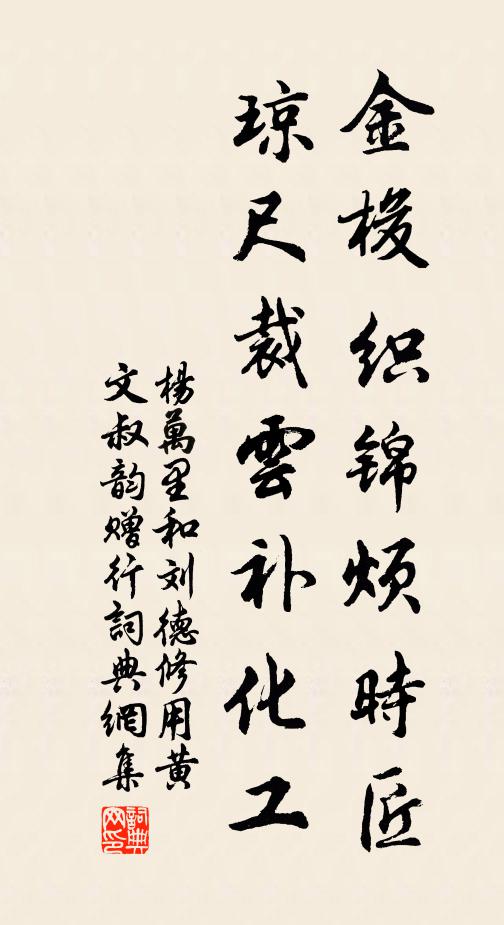 金梭织锦烦時匠
琼尺裁雲补化工
楊萬里和刘德修用黄
文叔韵赠行詞典網集
詞典网印